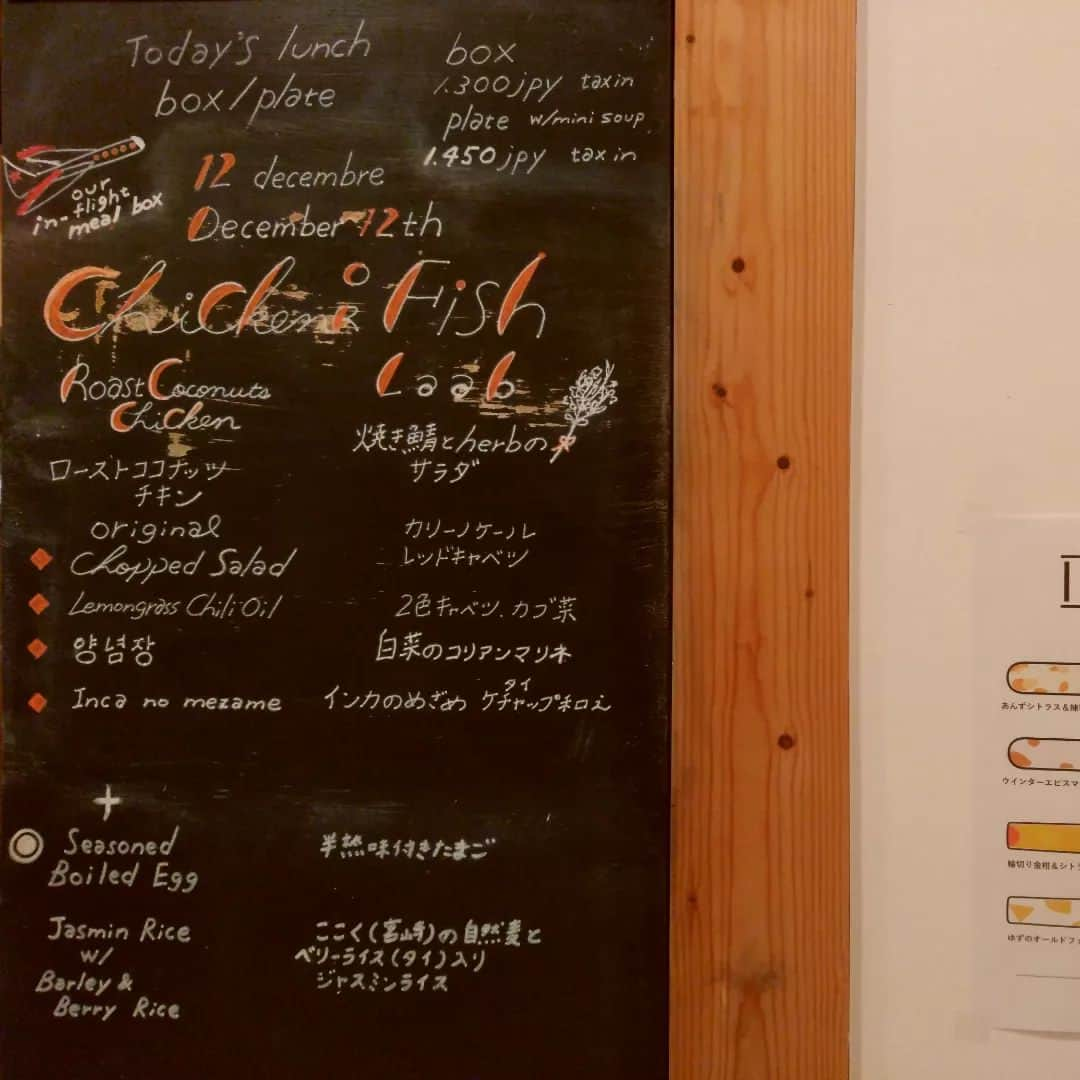 Today's lunch
box/plate
box
1.300jpy taxin
plate w/mini soup
1.450jpy taxin
our
in-flight
meal box
12 decembre
December 12th
Chicken
Fish
Roast Coconuts
Chicken
Laab
ローストココナッツ
チキン
焼き鯖とherbの
サラダ
original
Chopped Salad
カリーノケール
レッドキャベツ
Lemongrass Chili Oil
2色キャベツ、カブ菜
양념장
白菜のコリアンマリネ
Inca no mezame
インカのめざめ ケチャップ和え
タイ
+
Seasoned
Boiled Egg
半熟味付きたまご
Jasmin Rice
w/
Barley &
Berry Rice
ここく(宮崎)の自然麦と
ベリーライス(タイ)入り
ジャスミンライス
あんずシトラス&
ウインターエピスマ
輪切り金柑&シトラ
ゆずのオールドフ